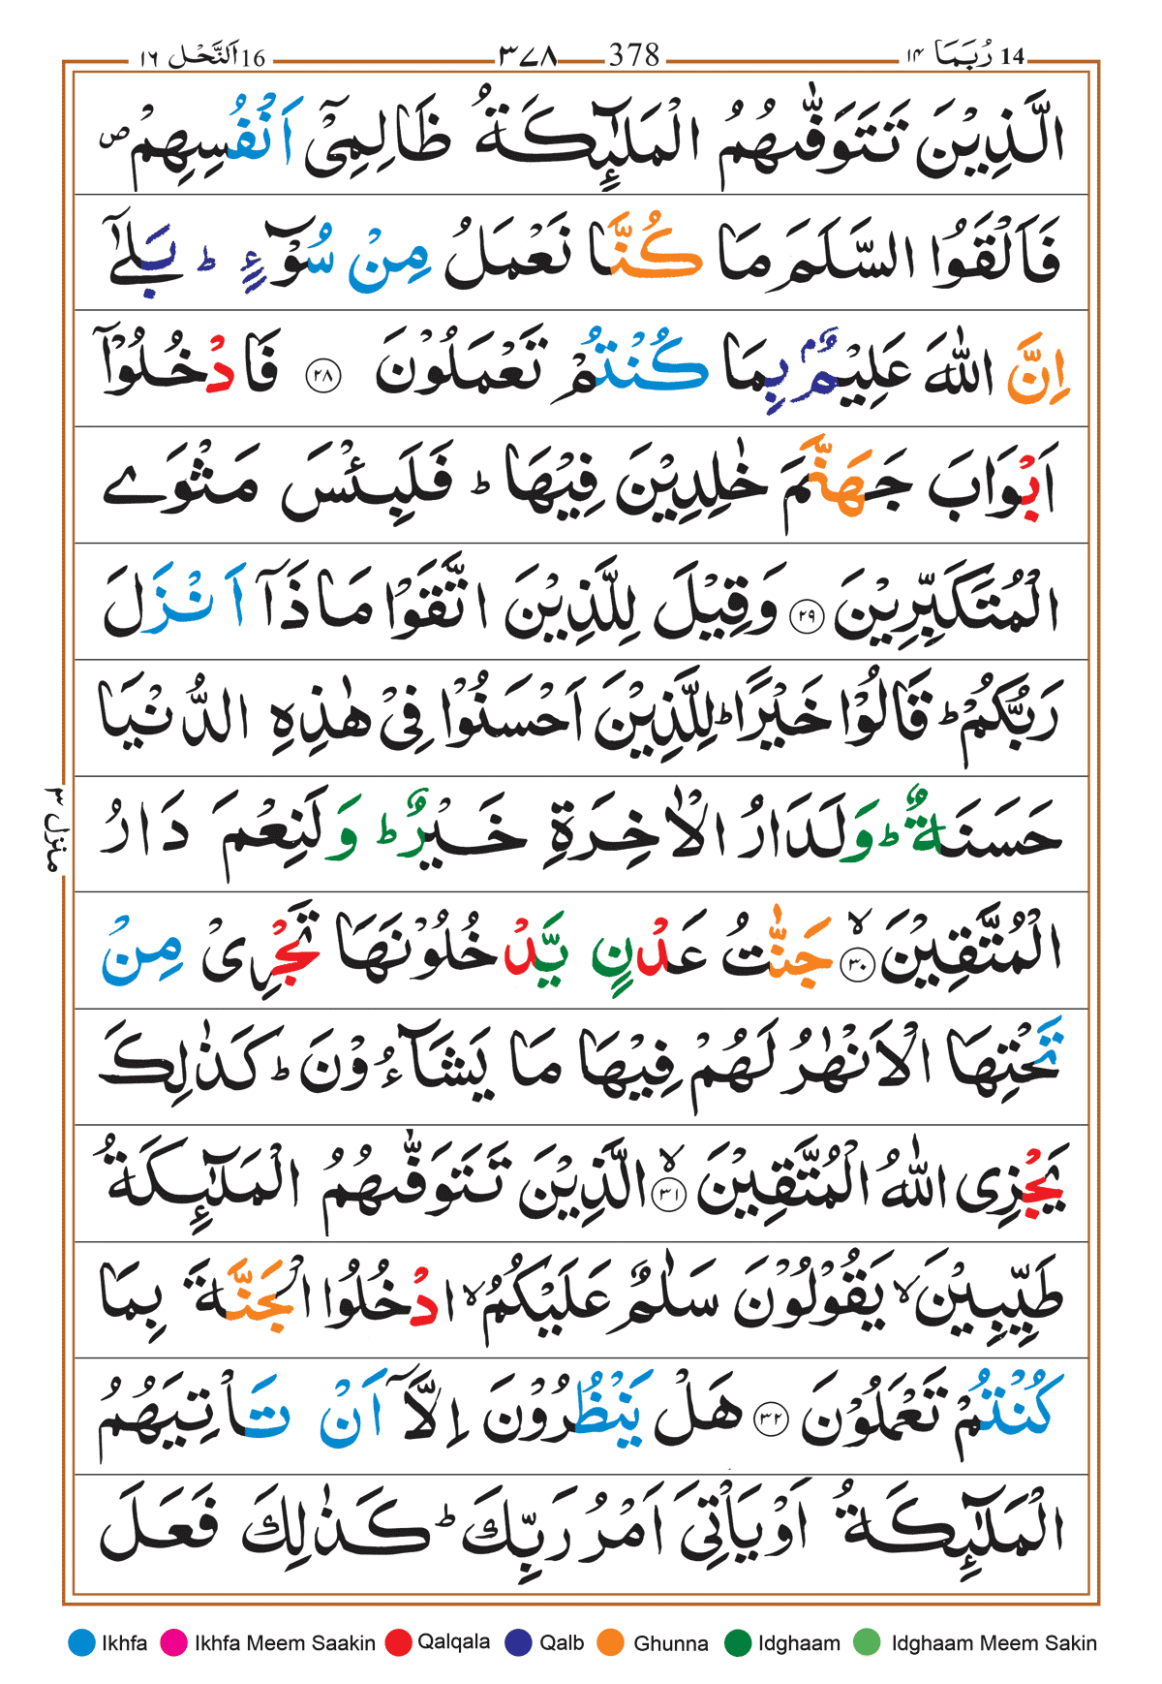 16 اَلنَّحْل ١٦
٣٧٨ 378
14 رُبَمَا ١٤
الَّذِيْنَ تَتَوَفّٰىهُمُ الْمَلٰٓئِكَةُ ظَالِمِيْۤ اَنْفُسِهِمْ ۪
فَاَلْقَوُا السَّلَمَ مَا كُنَّا نَعْمَلُ مِنْ سُوْٓءٍ ؕ بَلٰۤے
اِنَّ اللّٰهَ عَلِيْمٌۢ بِمَا كُنْتُمْ تَعْمَلُوْنَ ٢٨ فَادْخُلُوْۤا
اَبْوَابَ جَهَنَّمَ خٰلِدِيْنَ فِيْهَا ؕ فَلَبِئْسَ مَثْوَے
الْمُتَكَبِّرِيْنَ ٢٩ وَقِيْلَ لِلَّذِيْنَ اتَّقَوْا مَاذَاۤ اَنْزَلَ
رَبُّكُمْ ؕ قَالُوْا خَيْرًا ؕ لِلَّذِيْنَ اَحْسَنُوْا فِيْ هٰذِهِ الدُّنْيَا
حَسَنَةٌ ؕ وَلَدَارُ الْاٰخِرَةِ خَيْرٌ ؕ وَلَنِعْمَ دَارُ
الْمُتَّقِيْنَ ۙ ٣٠ جَنّٰتُ عَدْنٍ يَّدْخُلُوْنَهَا تَجْرِيْ مِنْ
تَحْتِهَا الْاَنْهٰرُ لَهُمْ فِيْهَا مَا يَشَآءُوْنَ ؕ كَذٰلِكَ
يَجْزِى اللّٰهُ الْمُتَّقِيْنَ ۙ ٣١ الَّذِيْنَ تَتَوَفّٰىهُمُ الْمَلٰٓئِكَةُ
طَيِّبِيْنَ ۙ يَقُوْلُوْنَ سَلٰمٌ عَلَيْكُمُ ۙ ادْخُلُوا الْجَنَّةَ بِمَا
كُنْتُمْ تَعْمَلُوْنَ ٣٢ هَلْ يَنْظُرُوْنَ اِلَّاۤ اَنْ تَاْتِيَهُمُ
الْمَلٰٓئِكَةُ اَوْ يَاْتِيَ اَمْرُ رَبِّكَ ؕ كَذٰلِكَ فَعَلَ
منزل ٣
Ikhfa Ikhfa Meem Saakin Qalqala Qalb Ghunna Idghaam Idghaam Meem Sakin